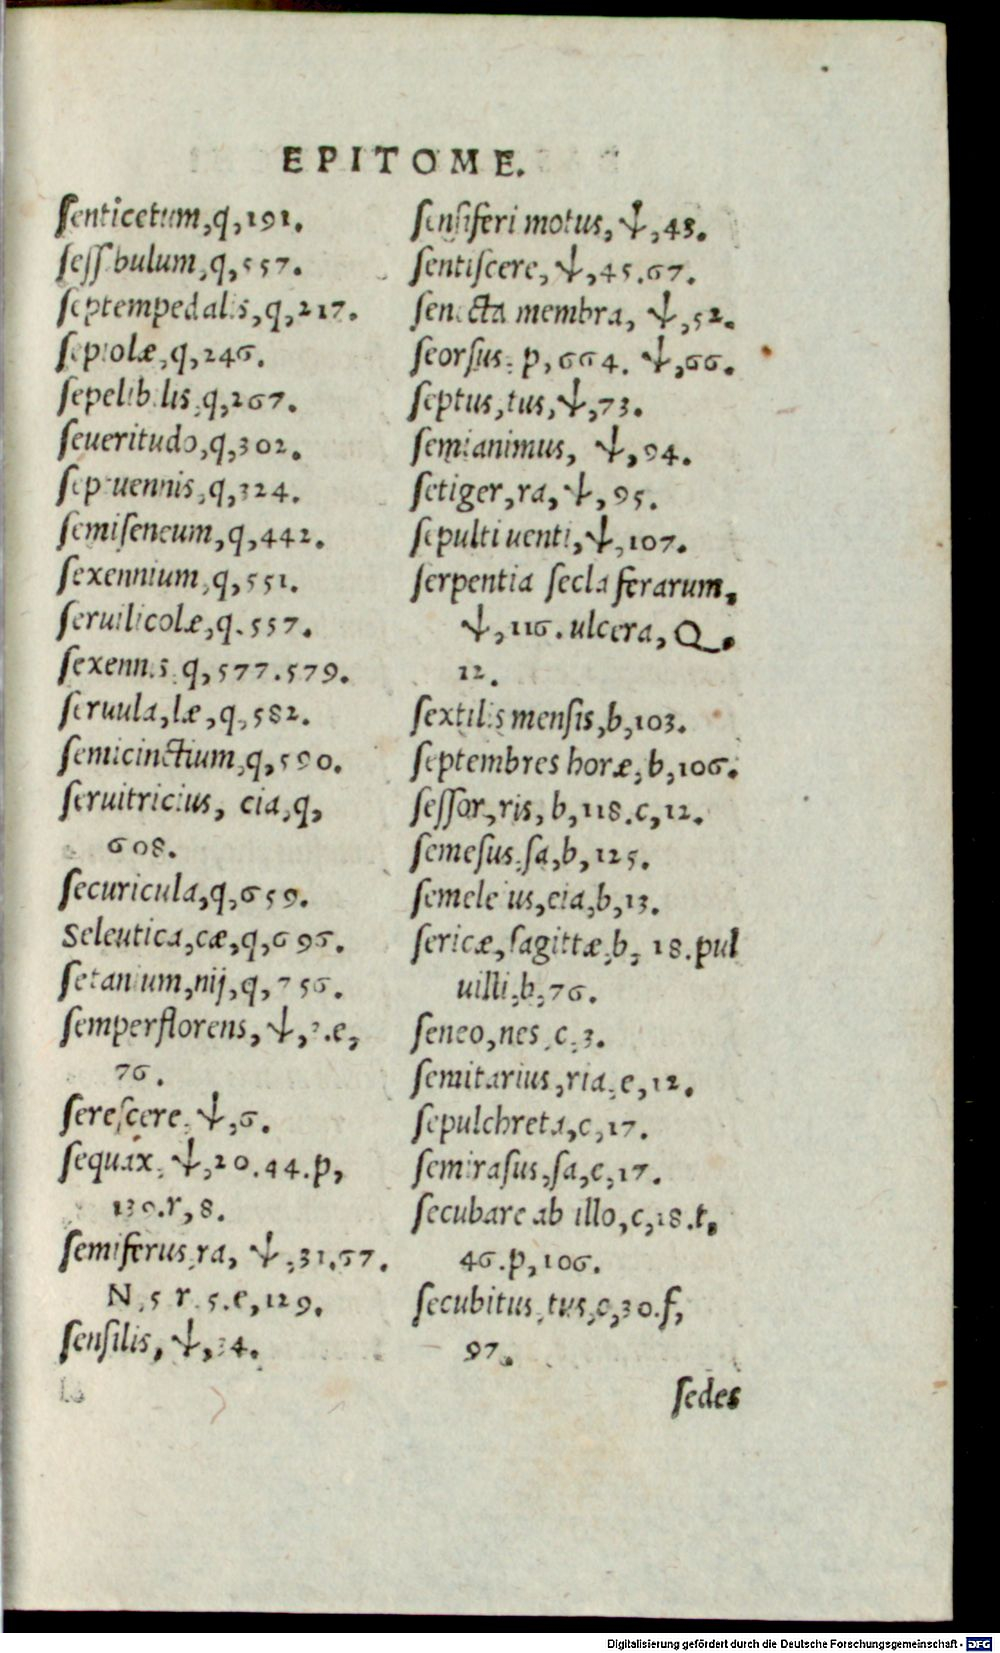 EPITOME.
ſenticetum,q,191.
ſeſſibulum,q,557.
ſeptempedalis,q,217.
ſepiolæ,q,246.
ſepelibilis,q,267.
ſeueritudo,q,302.
ſeptuennis,q,324.
ſemiſeneum,q,442.
ſexennium,q,551.
ſeruilicolæ,q.557.
ſexennis,q,577.579.
ſeruula,læ,q,582.
ſemicinctium,q,590.
ſeruitricius, cia,q,
608.
ſecuricula,q,659.
Seleutica,cæ,q,696.
ſetanium,nij,q,756.
ſemperflorens,ↆ,3.e,
76.
ſereſcere,ↆ,6.
ſequax,ↆ,20.44.p,
130.r,8.
ſemiferus,ra, ↆ,31.67.
N,5 r.5.e,129.
ſenſilis,ↆ,34.
ſenſiferi motus,ↆ,48.
ſentiſcere,ↆ,45.67.
ſenecta membra, ↆ,52.
ſeorſus, p,664. ↆ,66.
ſeptus,tus,ↆ,73.
ſemianimus, ↆ,94.
ſetiger,ra,ↆ,95.
ſepulti uenti,ↆ,107.
ſerpentia ſecla ferarum,
ↆ,116.ulcera,Q,
12.
ſextilis menſis,b,103.
ſeptembres horæ,b,106.
ſeſſor,ris,b,118.c,12.
ſemeſus,ſa,b,125.
ſemeleius,eia,b,13.
ſericæ,ſagittæ,b, 18.pul
uilli,b,76.
ſeneo,nes,c,3.
ſemitarius,ria,e,12.
ſepulchreta,c,17.
ſemiraſus,ſa,e,17.
ſecubare ab illo,c,18.t,
46.p,106.
ſecubitus,tus,c,30.f,
97.
ſedes
Digitalisierung gefördert durch die Deutsche Forschungsgemeinschaft - DFG